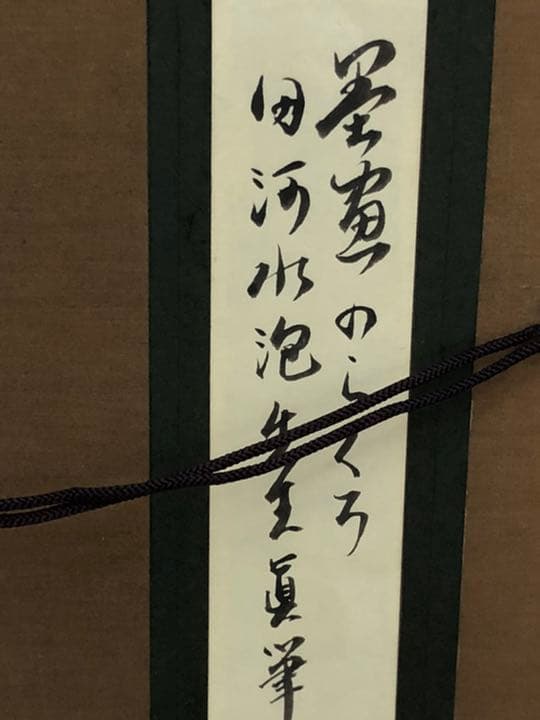 墨画のらくろ
田河水泡先生眞筆